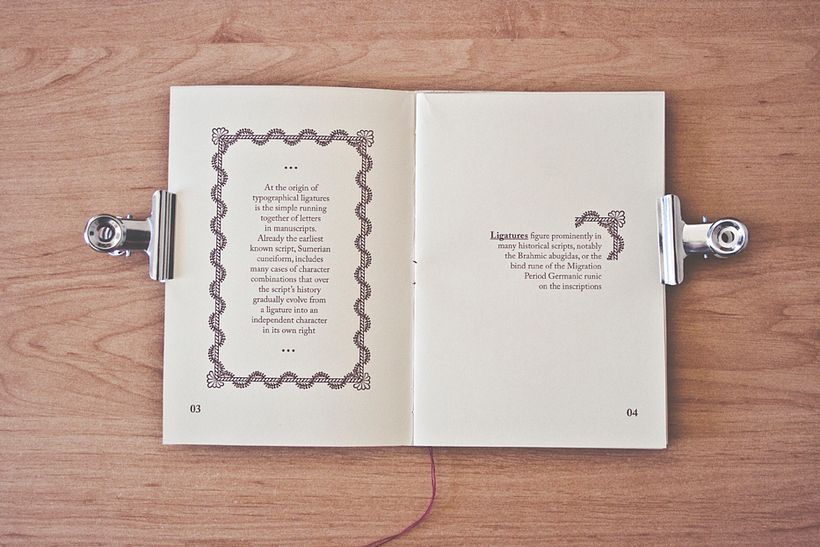 •••
At the origin of
typographical ligatures
is the simple running
together of letters
in manuscripts.
Already the earliest
known script, Sumerian
cuneiform, includes
many cases of character
combinations that over
the script's history
gradually evolve from
a ligature into an
independent character
in its own right
•••
03
Ligatures figure prominently in
many historical scripts, notably
the Brahmic abugidas, or the
bind rune of the Migration
Period Germanic runic
on the inscriptions
04